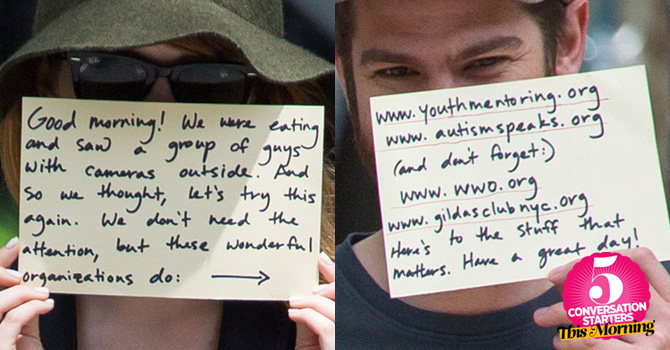 Good morning! We were eating
and saw a group of guys
with cameras outside. And
so we thought, let's try this
again. We don't need the
attention, but these wonderful
organizations do: →
www.youthmentoring.org
www.autismspeaks.org
(and don't forget:)
www.wwo.org
www.gildasclubnyc.org
Here's to the stuff that
matters. Have a great day!
5
CONVERSATION
STARTERS
This Morning